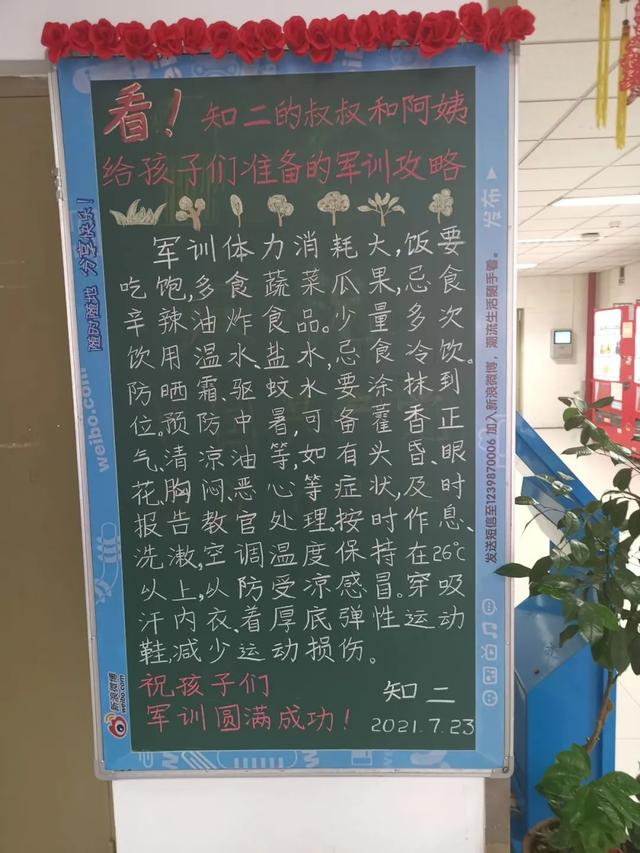 看！知二的叔叔和阿姨
给孩子们准备的军训攻略
军训体力消耗大,饭要
吃饱,多食蔬菜瓜果,忌食
辛辣油炸食品。少量多次
饮用温水、盐水,忌食冷饮。
防晒霜、驱蚊水要涂抹到
位。预防中暑,可备藿香正
气、清凉油等,如有头昏、眼
花、胸闷、恶心等症状,及时
报告教官处理。按时作息、
洗漱,空调温度保持在26℃
以上,从防受凉感冒。穿吸
汗内衣、着厚底弹性运动
鞋,减少运动损伤。
祝孩子们
军训圆满成功！
知二
2021.7.23
随时随地 分享快乐！
weibo.com
新浪微博
weibo.com
发布
发送短信至1239870006 加入新浪微博，潮流生活随手看。